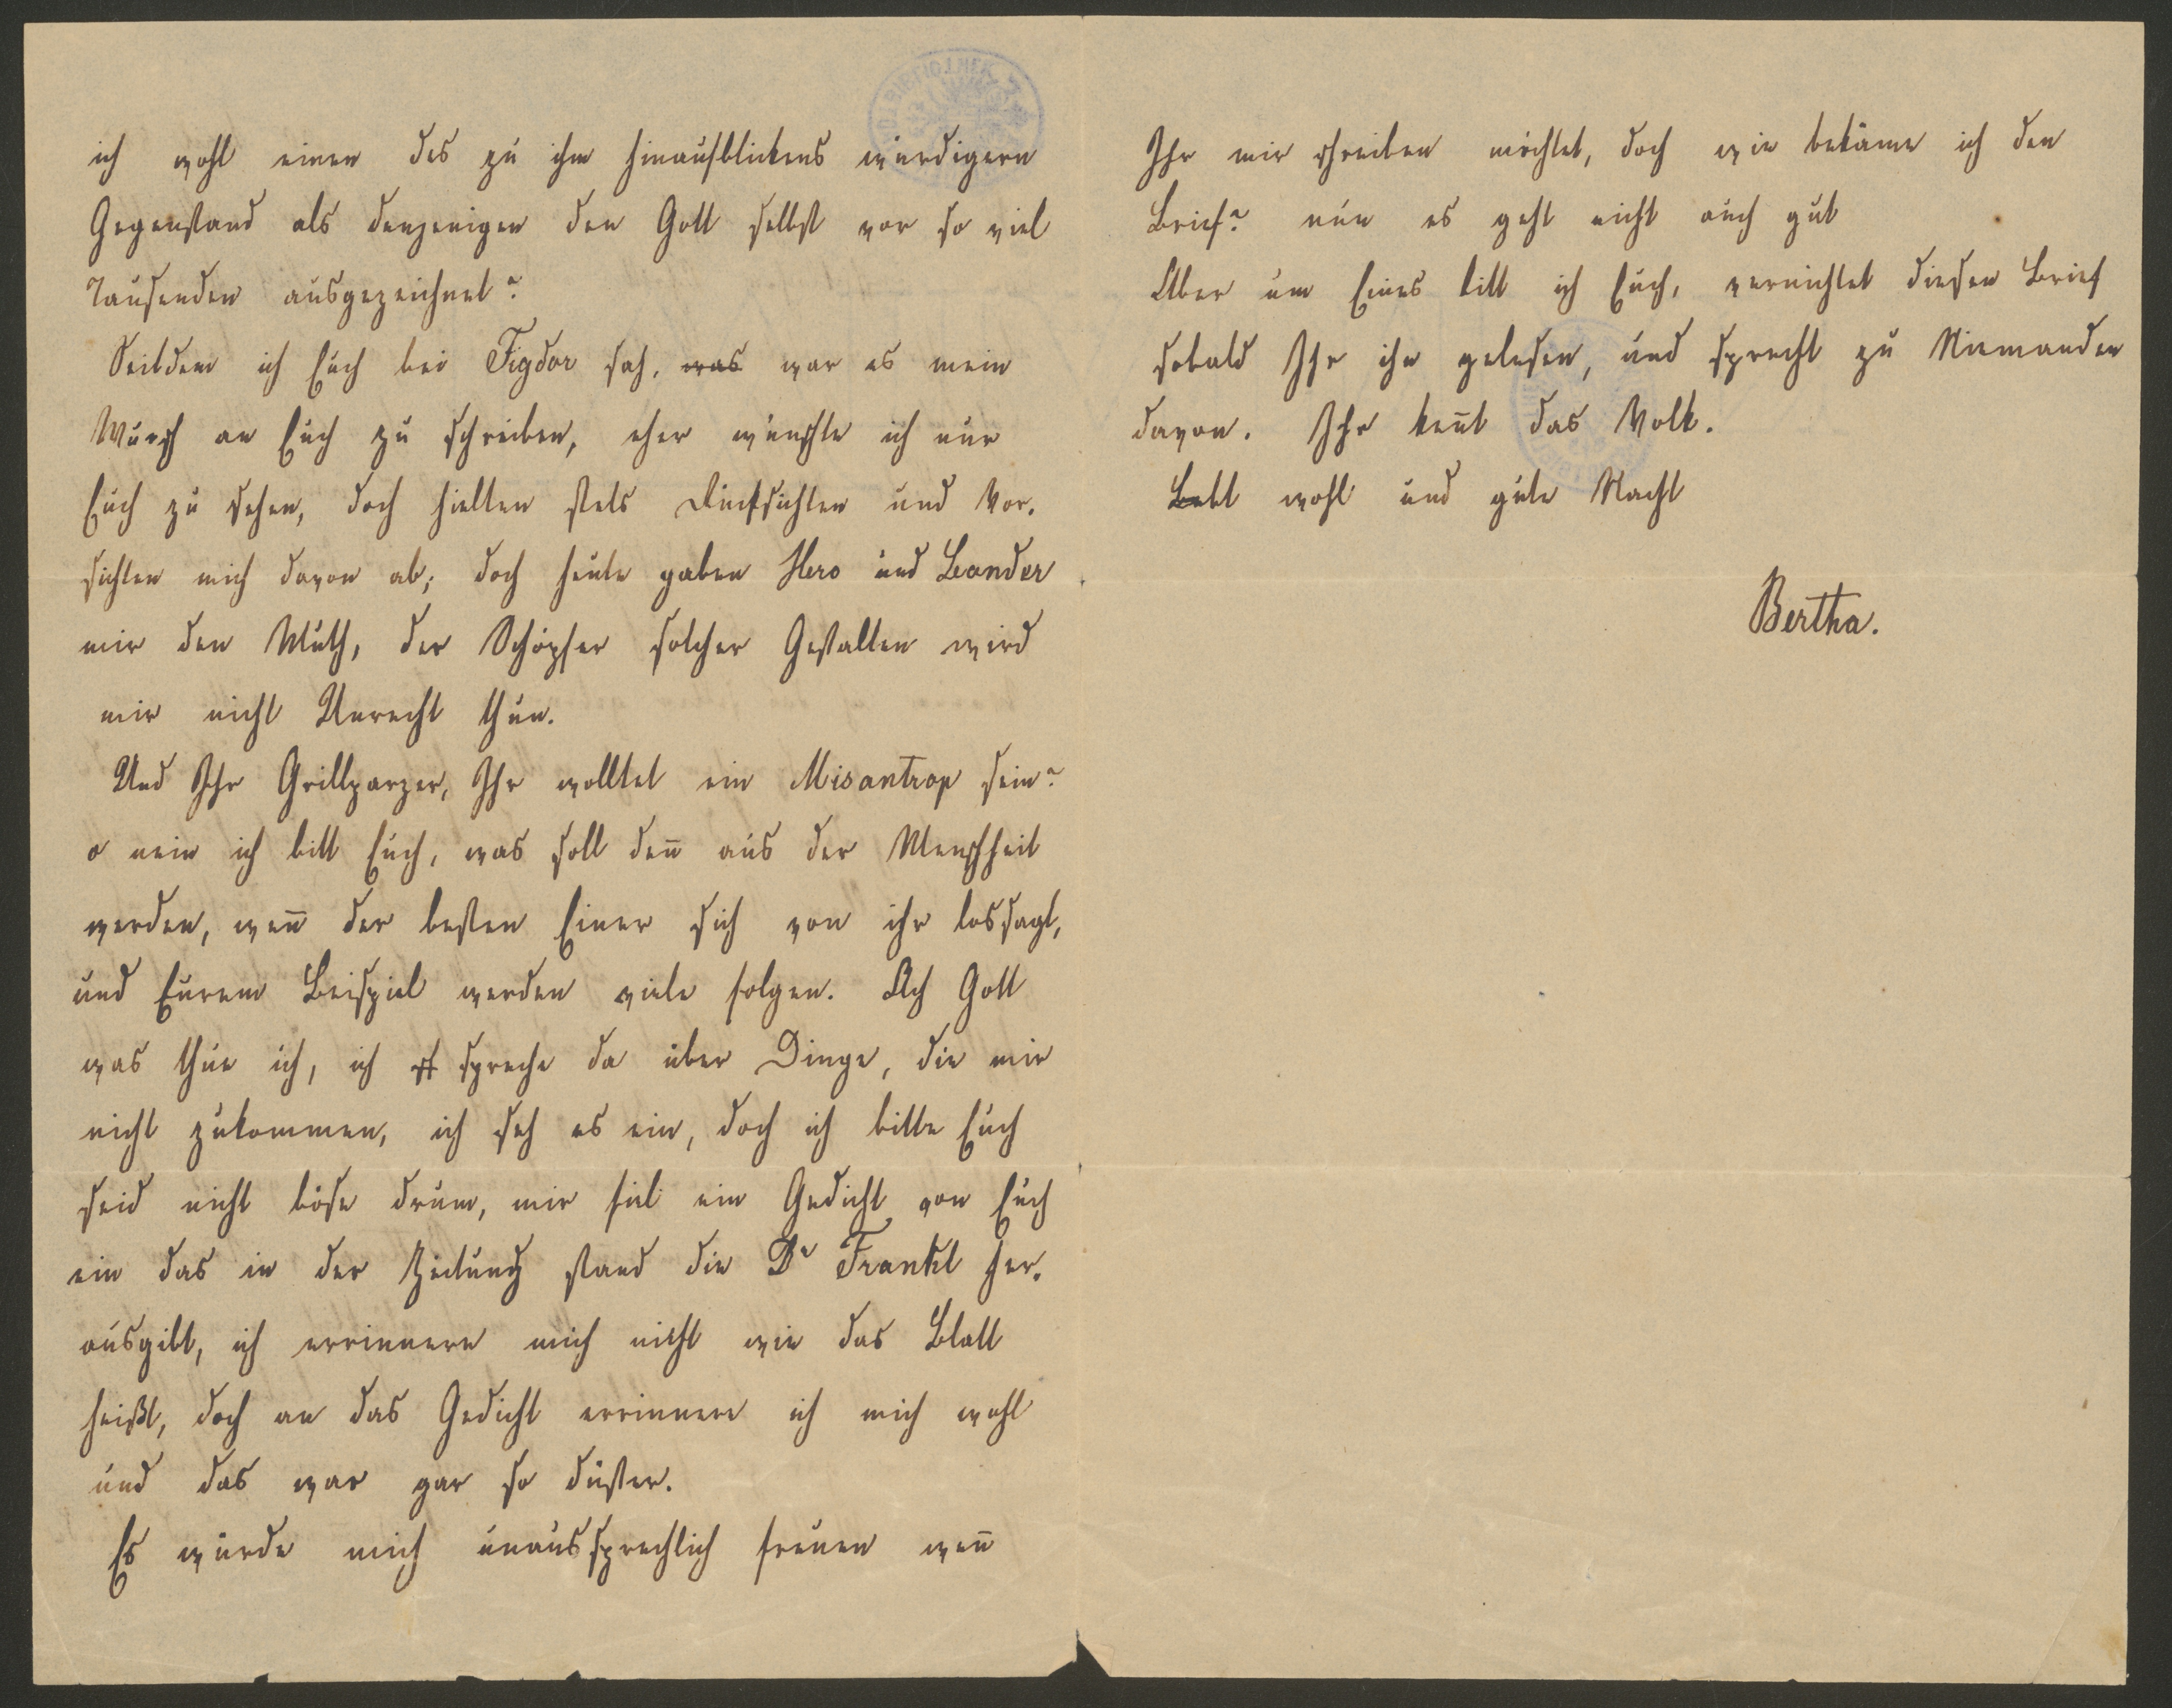 ich wohl einen des zu ihm hinaufblickens würdigern
Gegenstand als denjenigen den Gott selbst vor so viel
Tausenden ausgezeichnet?
Seitdem ich Euch bei Figdor sah, was war es mein
Wunsch an Euch zu schreiben, eher wünschte ich nur
Euch zu sehen, doch hielten stets Rücksichten und Vor-
sichten mich davon ab; doch heute gaben Hero und Leander
mir den Muth, der Schöpfer solcher Gestalten wird
mir nicht Unrecht thun.
Und Ihr Grillparzer, Ihr wolltet ein Misantrop sein?
o nein ich bitt Euch, was soll den̄ aus der Menschheit
werden, wen̄ der besten Einer sich von ihr lossagt,
und Eurem Beispiel werden viele folgen. Ach Gott
was thue ich, ich spreche da über Dinge, die mir
nicht zukommen, ich seh es ein, doch ich bitte Euch
seid nicht böse drum, mir fiel ein Gedicht von Euch
ein das in der Zeitung stand die Dr Frankl her-
ausgibt, ich errinnere mich nicht wie das Blatt
heißt, doch an das Gedicht errinnere ich mich wohl
und das war gar so düster.
Es würde mich unaussprechlich freuen wen̄
Ihr mir schreiben möchtet, doch wie bekäme ich den
Brief? nun es geht nicht auch gut
Aber um Eines bitt ich Euch, vernichtet diesen Brief
sobald Ihr ihn gelesen, und sprecht zu Niemanden
davon. Ihr ken̄t das Volk.
Lebt wohl und gute Nacht
Bertha.